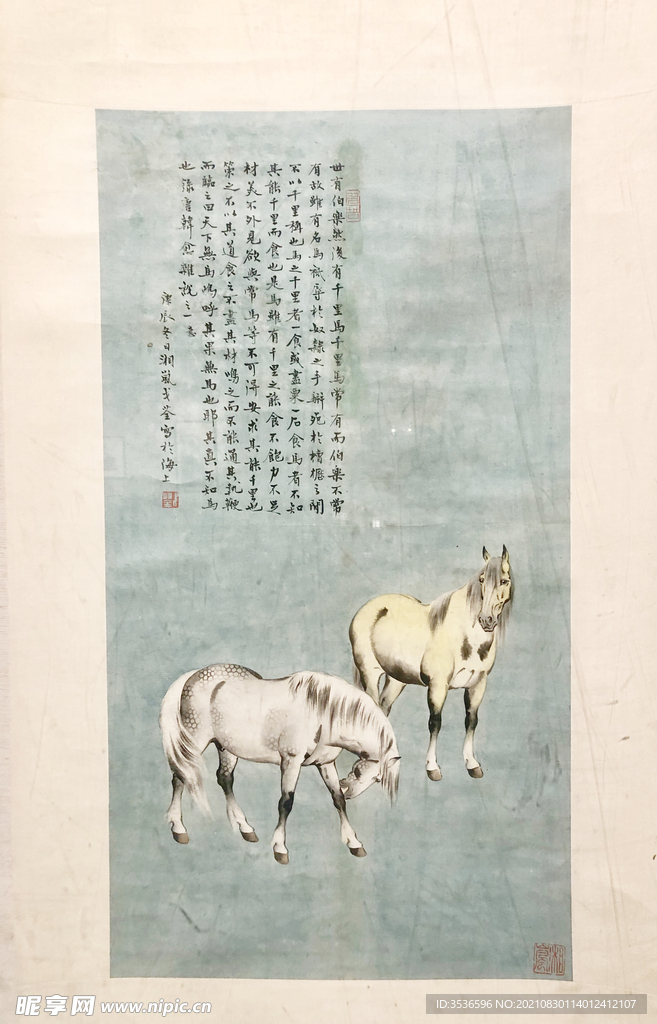 世有伯樂然後有千里馬千里馬常有而伯樂不常
有故雖有名馬祗辱於奴隸之手駢死於槽櫪之間
不以千里稱也馬之千里者一食或盡粟一石食馬者不知
其能千里而食也是馬雖有千里之能食不飽力不足
材美不外見欲與常馬等不可得安求其能千里也
策之不以其道食之不盡其材鳴之而不能通其執鞭
而臨之曰天下無馬嗚呼其果無馬也耶其真不知馬
也錄唐韓愈雜說之一
庚辰冬日湘嵐戈荃寫於海上
昵享网 www.nipic.cn
ID:3536596 NO:20210830114012412107